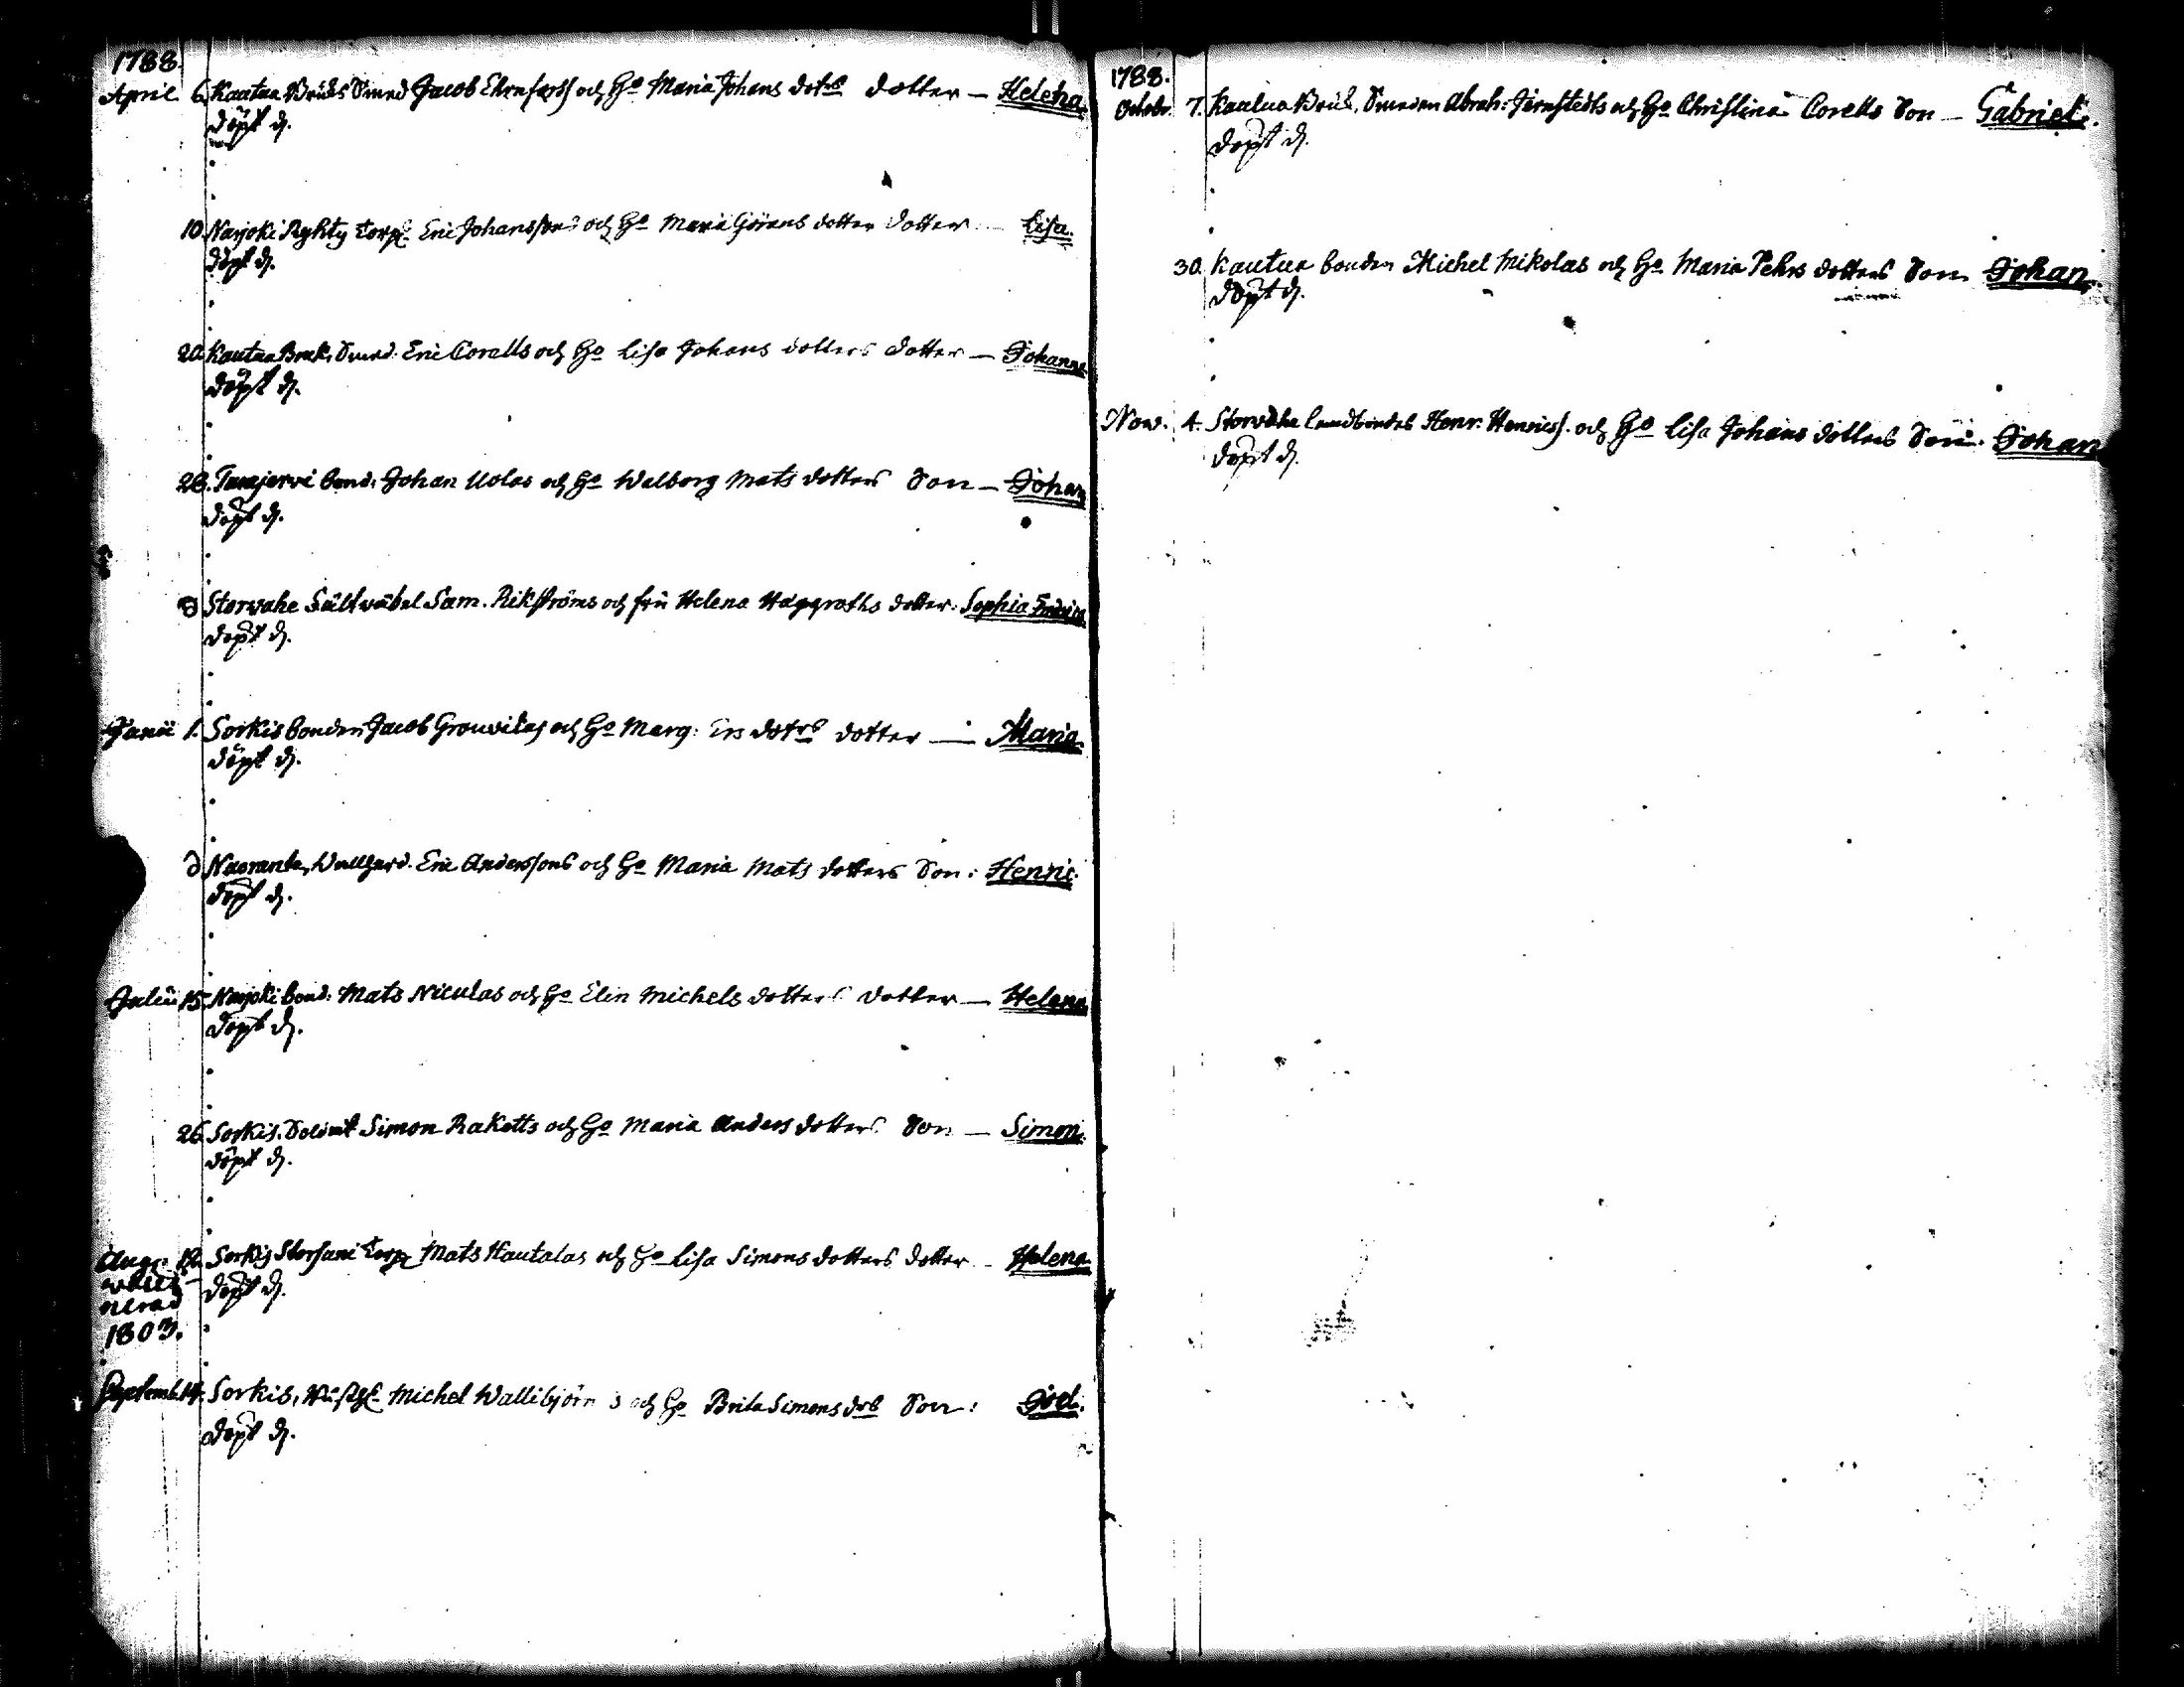 1788.
April 6. Kautua Bruks Smed Jacob Ehrnfors och Ho Maria Johans dotrs dotter — Helena
döpt d.
10. Narjoki Torp. Eric Johanssons och Ho Maria Görans dotter dotter — Lisa.
döpt d.
20. Kautua Bruk, Smed. Eric Corells och Ho Lisa Johans dotters dotter — Johanna
döpt d.
28. bond. Johan Uolas och Ho Walborg Mats dotters Son — Johan
döpt d.
Storvahe Fältväbel Sam. Rikströms och fru Helena Haggroths dotter: Sophia
döpt d.
Junii 1. Sorkis bonden Jacob och Ho Marg: Ers dotrs dotter — Maria.
döpt d.
d Eric Anderssons och Ho Maria Mats dotters Son: Henric.
döpt d.
Julii 15. Narjoki bond: Mats Niculas och Ho Elin Michels dotters dotter — Helena
döpt d.
26. Sorkis. Simon Raketts och Ho Maria Anders dotters Son — Simon.
döpt d.
Aug: 12. Sorkis Torp Mats Hautalas och Ho Lisa Simons dotters dotter — Helena
döpt d.
1803.
Septemb. 14. Sorkis, Michel Wallibjörns och Ho Brita Simons drs Son: Joel.
döpt d.
1788.
Octobr. 7. Kautua Bruk, Smeden Abrah: Jernstedts och Ho Christina Corells Son — Gabriel.
döpt d.
30. Kautua bonden Michel Mikolas och Ho Maria Pehrs dotters Son Johan.
döpt d.
Nov. 4. Storvahe Landbondes Henr. Henricss. och Ho Lisa Johans dotters Son. Johan
döpt d.